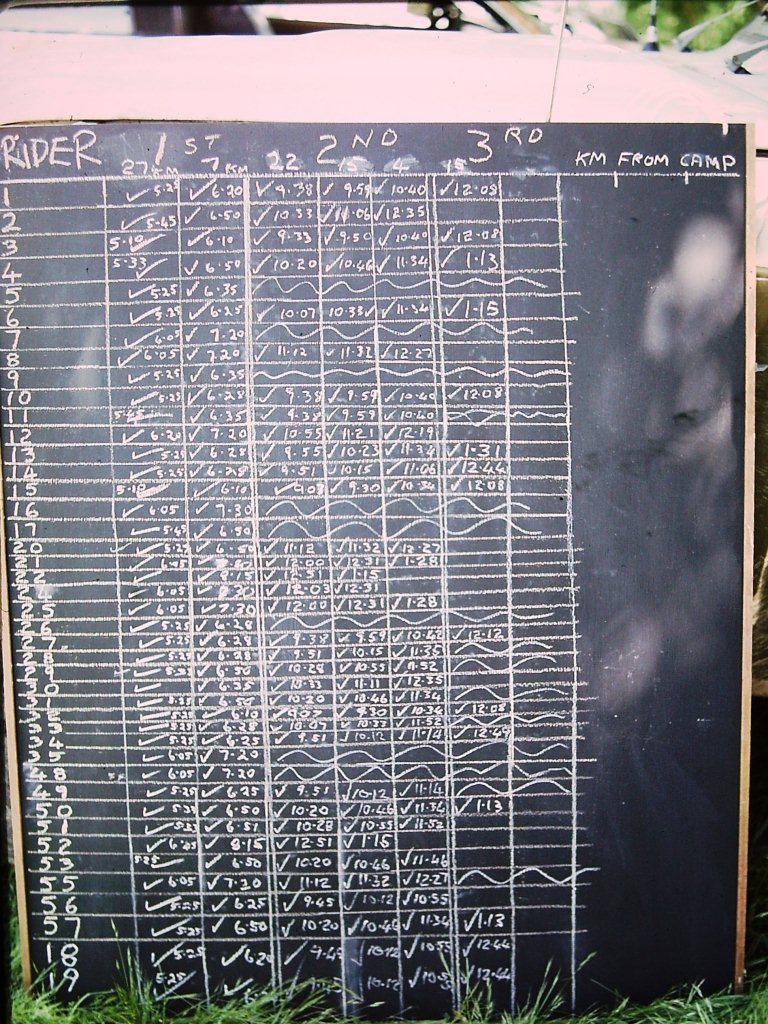 RIDER 1 ST 2 ND 3 RD KM FROM CAMP
27 KM 7 KM 22 15 4 15
1 ✓ 5.25 ✓ 6.20 ✓ 9.38 ✓ 9.59 ✓ 10.40 ✓ 12.08
2 ✓ 5.45 ✓ 6.50 ✓ 10.33 ✓ 11.06 ✓ 12.35
3 5.10 ✓ ✓ 6.10 ✓ 9.33 ✓ 9.50 ✓ 10.40 ✓ 12.08
4 5.33 ✓ ✓ 6.50 ✓ 10.20 ✓ 10.46 ✓ 11.34 ✓ 1.13
5 ✓ 5.25 ✓ 6.35
6 ✓ 5.25 ✓ 6.25 ✓ 10.07 10.33 ✓ 11.34 ✓ 1.15
7 ✓ 6.05 ✓ 7.20
8 ✓ 6.05 ✓ 7.20 ✓ 11.12 ✓ 11.32 ✓ 12.27
9 ✓ 5.25 ✓ 6.35
10 ✓ 5.25 ✓ 6.28 ✓ 9.38 ✓ 9.59 ✓ 10.40 ✓ 12.08
11 5.45 ✓ 6.35 ✓ 9.38 ✓ 9.59 ✓ 10.40
12 ✓ 6.20 ✓ 7.20 ✓ 10.55 ✓ 11.21 ✓ 12.19
13 ✓ 5.25 ✓ 6.28 ✓ 9.55 ✓ 10.23 ✓ 11.34 ✓ 1.31
14 ✓ 5.25 ✓ 6.28 ✓ 9.51 ✓ 10.15 ✓ 11.06 ✓ 12.44
15 5.10 ✓ 6.10 ✓ 9.08 ✓ 9.30 ✓ 10.34 ✓ 12.08
16 ✓ 6.05 ✓ 7.30
17 ✓ 5.45 ✓ 6.50
20 ✓ 5.25 ✓ 6.50 ✓ 11.12 ✓ 11.32 ✓ 12.27
✓ 6.45 ✓ 12.00 ✓ 12.31 ✓ 1.28
✓ 8.15 ✓ 1.15
✓ 6.05 ✓ 12.03 ✓ 12.31
✓ 6.05 ✓ 7.30 ✓ 12.00 ✓ 12.31 ✓ 1.28
✓ 5.25 ✓ 6.28
✓ 5.25 ✓ 6.28 ✓ 9.59 ✓ 10.42 ✓ 12.12
✓ 5.25 ✓ 6.28 ✓ 9.51 ✓ 10.15 ✓ 11.35
✓ 6.50 ✓ 10.28 ✓ 10.55 ✓ 11.52
✓ ✓ 6.35 ✓ 10.33 ✓ 11.11 ✓ 12.35
✓ ✓ 6.50 ✓ 10.20 ✓ 10.46 ✓ 11.34
✓ 5.25 ✓ 6.10 ✓ 9.30 ✓ 10.34 ✓ 12.08
✓ 5.25 ✓ 6.28 ✓ 10.07 ✓ 10.33 ✓ 11.52
34 ✓ 5.25 ✓ 6.25 ✓ 9.51 ✓ 10.12 ✓ 11.14 ✓ 12.49
35 ✓ 6.05 ✓ 7.20
48 ✓ 6.05 ✓ 7.20
49 ✓ 5.25 ✓ 6.25 ✓ 9.51 ✓ 10.12 ✓ 11.14
50 ✓ ✓ 6.50 ✓ 10.20 ✓ 10.46 ✓ 11.34 ✓ 1.13
51 ✓ ✓ 6.51 ✓ 10.28 ✓ 10.55 ✓ 11.52
52 ✓ 6.45 ✓ 8.15 ✓ 12.51 ✓ 1.15
53 5.25 ✓ ✓ 6.50 ✓ 10.20 ✓ 10.46 ✓ 11.46
55 ✓ 6.05 ✓ 7.20 ✓ 11.12 ✓ 11.32 ✓ 12.27
56 ✓ 5.25 ✓ 6.25 ✓ 9.45 ✓ 10.12 ✓ 10.55
57 ✓ 5.25 ✓ 6.50 ✓ 10.20 ✓ 10.46 ✓ 11.34 ✓ 1.13
18 ✓ 5.25 ✓ 6.20 ✓ 9.45 ✓ 10.12 ✓ 10.55 ✓ 12.44
19 5.25 ✓ ✓ ✓ 10.12 ✓ ✓ 12.44